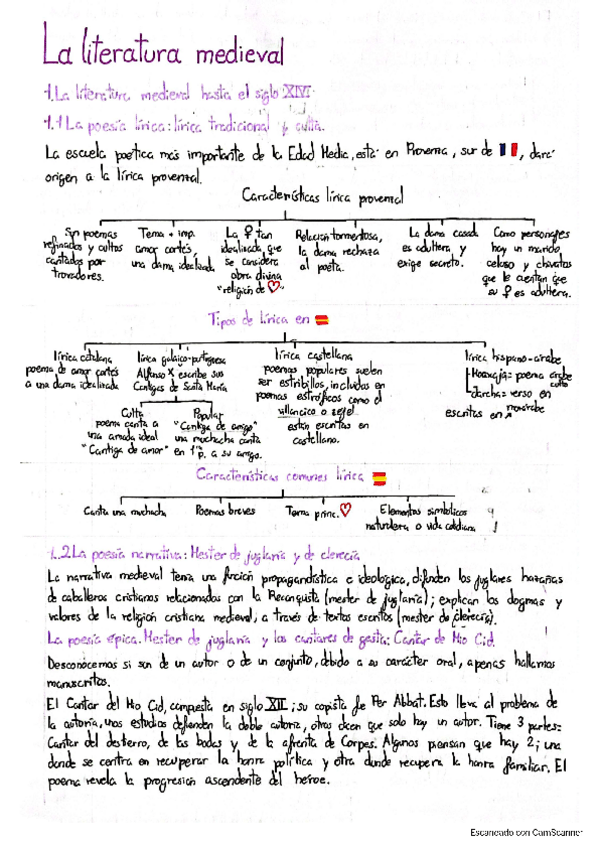 La literatura medieval
1. La literatura medieval hasta el siglo XIV
1.1 La poesía lírica: lírica tradicional y culta.
La escuela poética más importante de la Edad Media, está en Provenza, sur de 🇫🇷, dará
origen a la lírica provenzal.
Características lírica provenzal
Son poemas
refinados y cultos
cantados por
trovadores.
Tema + imp.
amor cortés,
una dama idealizada
La ♀ tan
idealizada, que
se considera
obra divina
"religión de ♡"
Relación tormentosa,
la dama rechaza
al poeta.
La dama casada
es adúltera y
exige secreto.
Como personajes
hay un marido
celoso y chivatos
que le cuentan que
su ♀ es adúltera.
Tipos de lírica en 🇪🇸
lírica catalana
poema de amor cortés
a una dama idealizada
lírica galaico-portuguesa
Alfonso X escribe sus
Cantigas de Santa María
Culta
poema canta a
una amada ideal
"Cantiga de amor"
Popular
"Cantiga de amigo"
una muchacha canta
en 1ª p. a su amigo.
lírica castellana
poemas populares suelen
ser estribillos, incluidos en
poemas estróficos como el
villancico o zéjel
están escritas en
castellano.
lírica hispano-árabe
Moaxaja = poema árabe
culto
Jarcha = verso en
escritas en mozárabe
Características comunes lírica 🇪🇸
Canta una muchacha
Poemas breves
Tema princ. ♡
Elementos simbólicos
naturaleza o vida cotidiana
1.2 La poesía narrativa: Mester de juglaría y de clerecía
La narrativa medieval tenía una función propagandística e ideológica, difunden los juglares hazañas
de caballeros cristianos relacionados con la Reconquista (mester de juglaría); explican los dogmas y
valores de la religión cristiana medieval, a través de textos escritos (mester de clerecía).
La poesía épica. Mester de juglaría y los cantares de gesta: Cantar de Mio Cid.
Desconocemos si son de un autor o de un conjunto, debido a su carácter oral, apenas hallamos
manuscritos.
El Cantar del Mio Cid, compuesta en siglo XII; su copista fue Per Abbat. Esto lleva al problema de
la autoría, unos estudios defienden la doble autoría, otros dicen que solo hay un autor. Tiene 3 partes=
Cantar del destierro, de las bodas y de la afrenta de Corpes. Algunos piensan que hay 2; una
donde se centra en recuperar la honra política y otra donde recupera la honra familiar. El
poema revela la progresión ascendente del héroe.
Escaneado con CamScanner